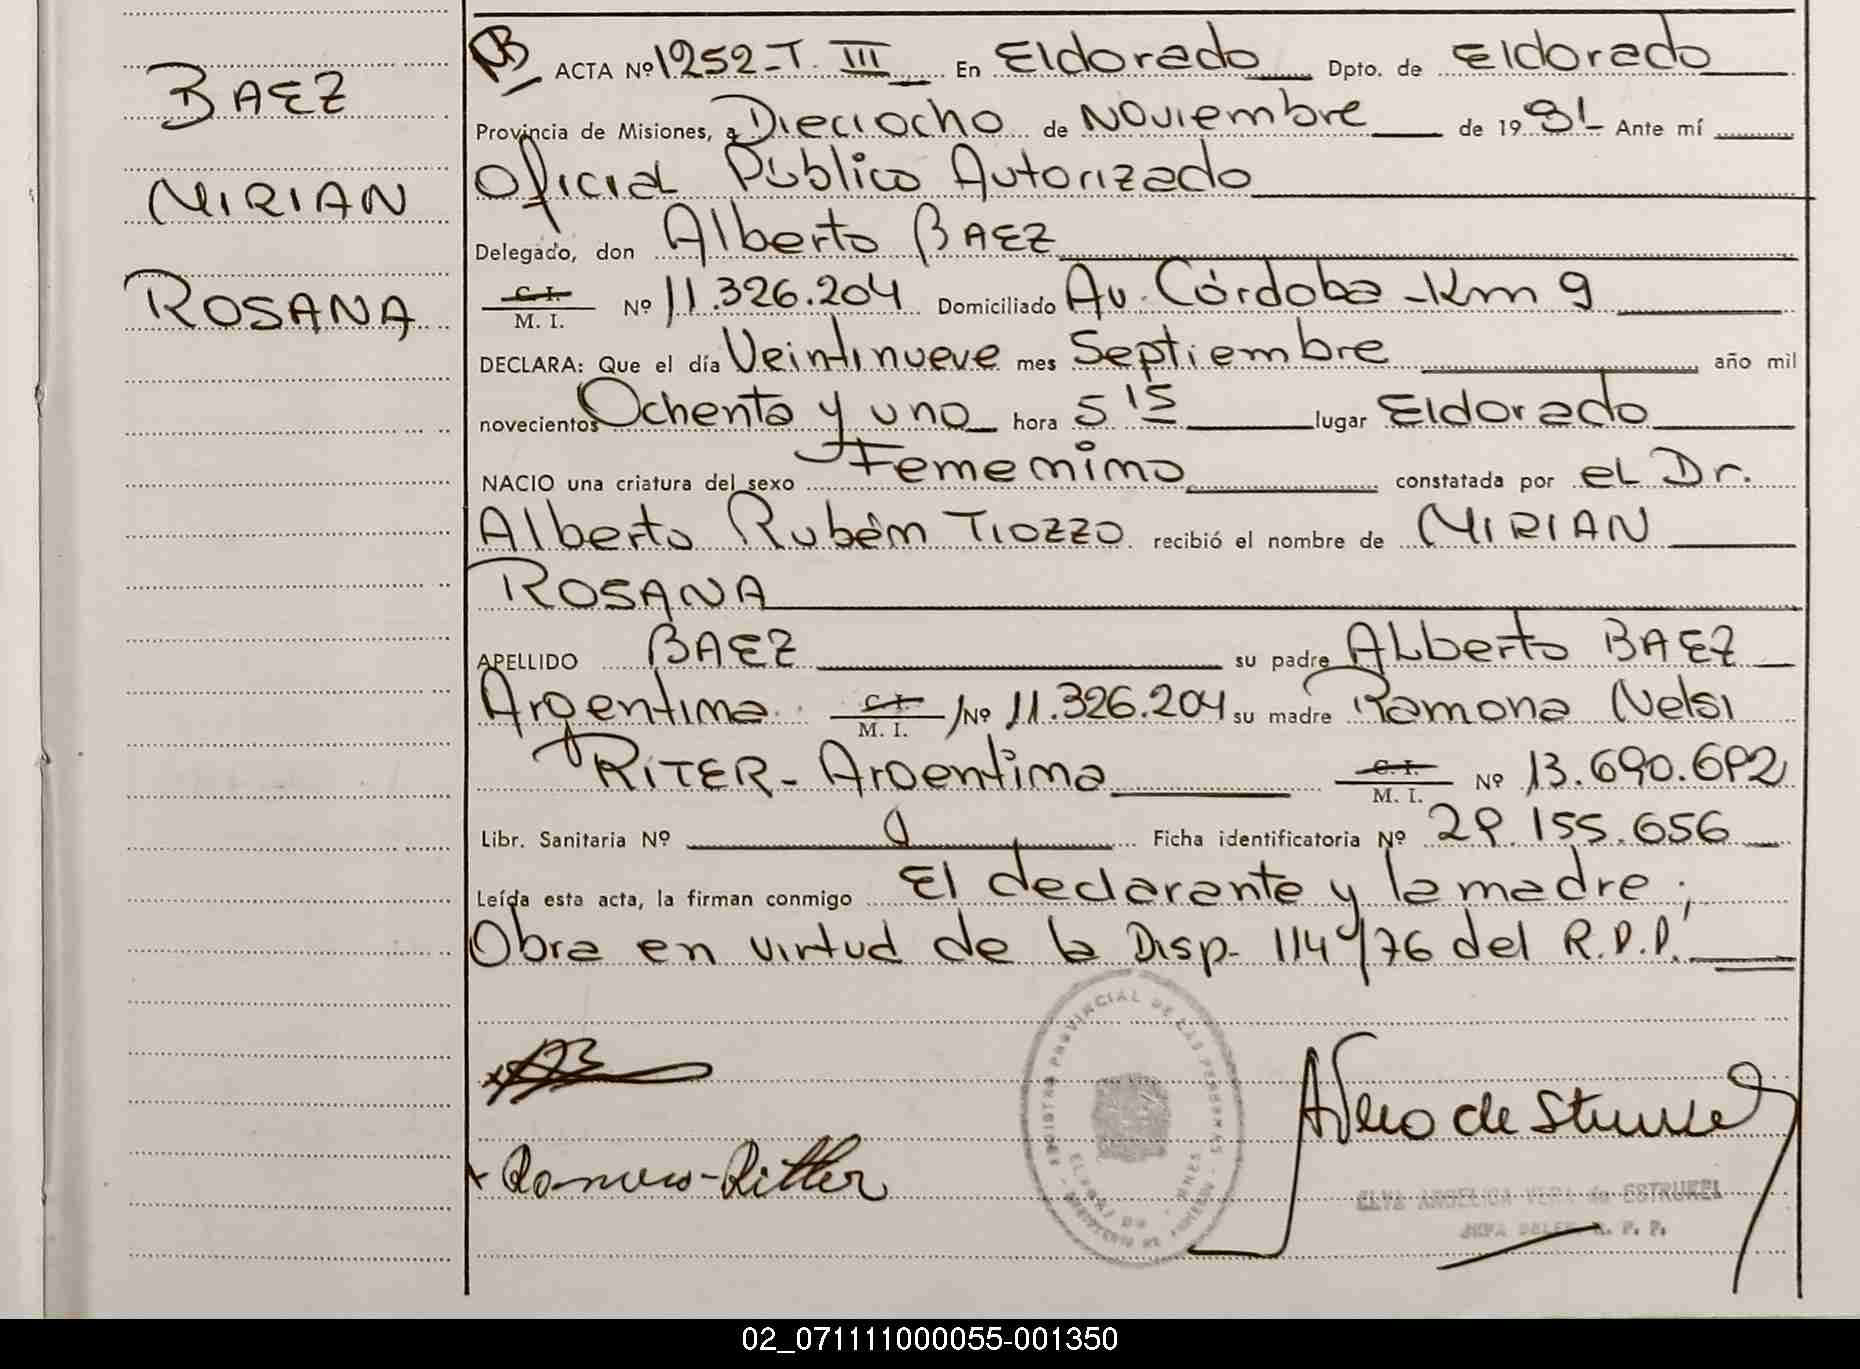 BAEZ
MIRIAN
ROSANA
ACTA Nº 1252-T. III En Eldorado Dpto. de Eldorado
Provincia de Misiones, a Dieciocho de Noviembre de 1981 Ante mí
Oficial Público Autorizado
Delegado, don Alberto BAEZ
C. I. M. I. Nº 11.326.204 Domiciliado Av. Córdoba - Km 9
DECLARA: Que el día Veintinueve mes Septiembre año mil
novecientos Ochenta y uno hora 5 15 lugar Eldorado
NACIO una criatura del sexo Femenino constatada por el Dr.
Alberto Rubén TIOZZO recibió el nombre de MIRIAN
ROSANA
APELLIDO BAEZ su padre Alberto BAEZ
Argentina C. I. M. I. Nº 11.326.204 su madre Ramona Nelsi
RITER - Argentina C. I. M. I. Nº 13.690.682
Libr. Sanitaria Nº Ficha identificatoria Nº 28.155.656
Leída esta acta, la firman conmigo El declarante y la madre;
Obra en virtud de la Disp. 114/76 del R.P.P.
REGISTRO PROVINCIAL DE LAS PERSONAS
Ritter
ELVA ANGELICA VERA de ESTRUKEL
JEFA R. P. P.
02_071111000055-001350